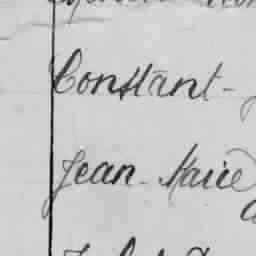 Constant-
Jean-Marie